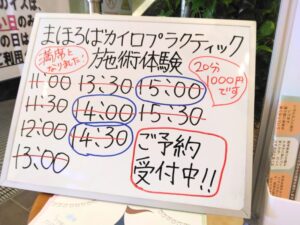 まほろばカイロプラクティック
施術体験
満席と
なりました!
20分
1000円
です
11:00 13:30 15:00
11:30 14:00 15:30
12:00 14:30
13:00
ご予約
受付中!!